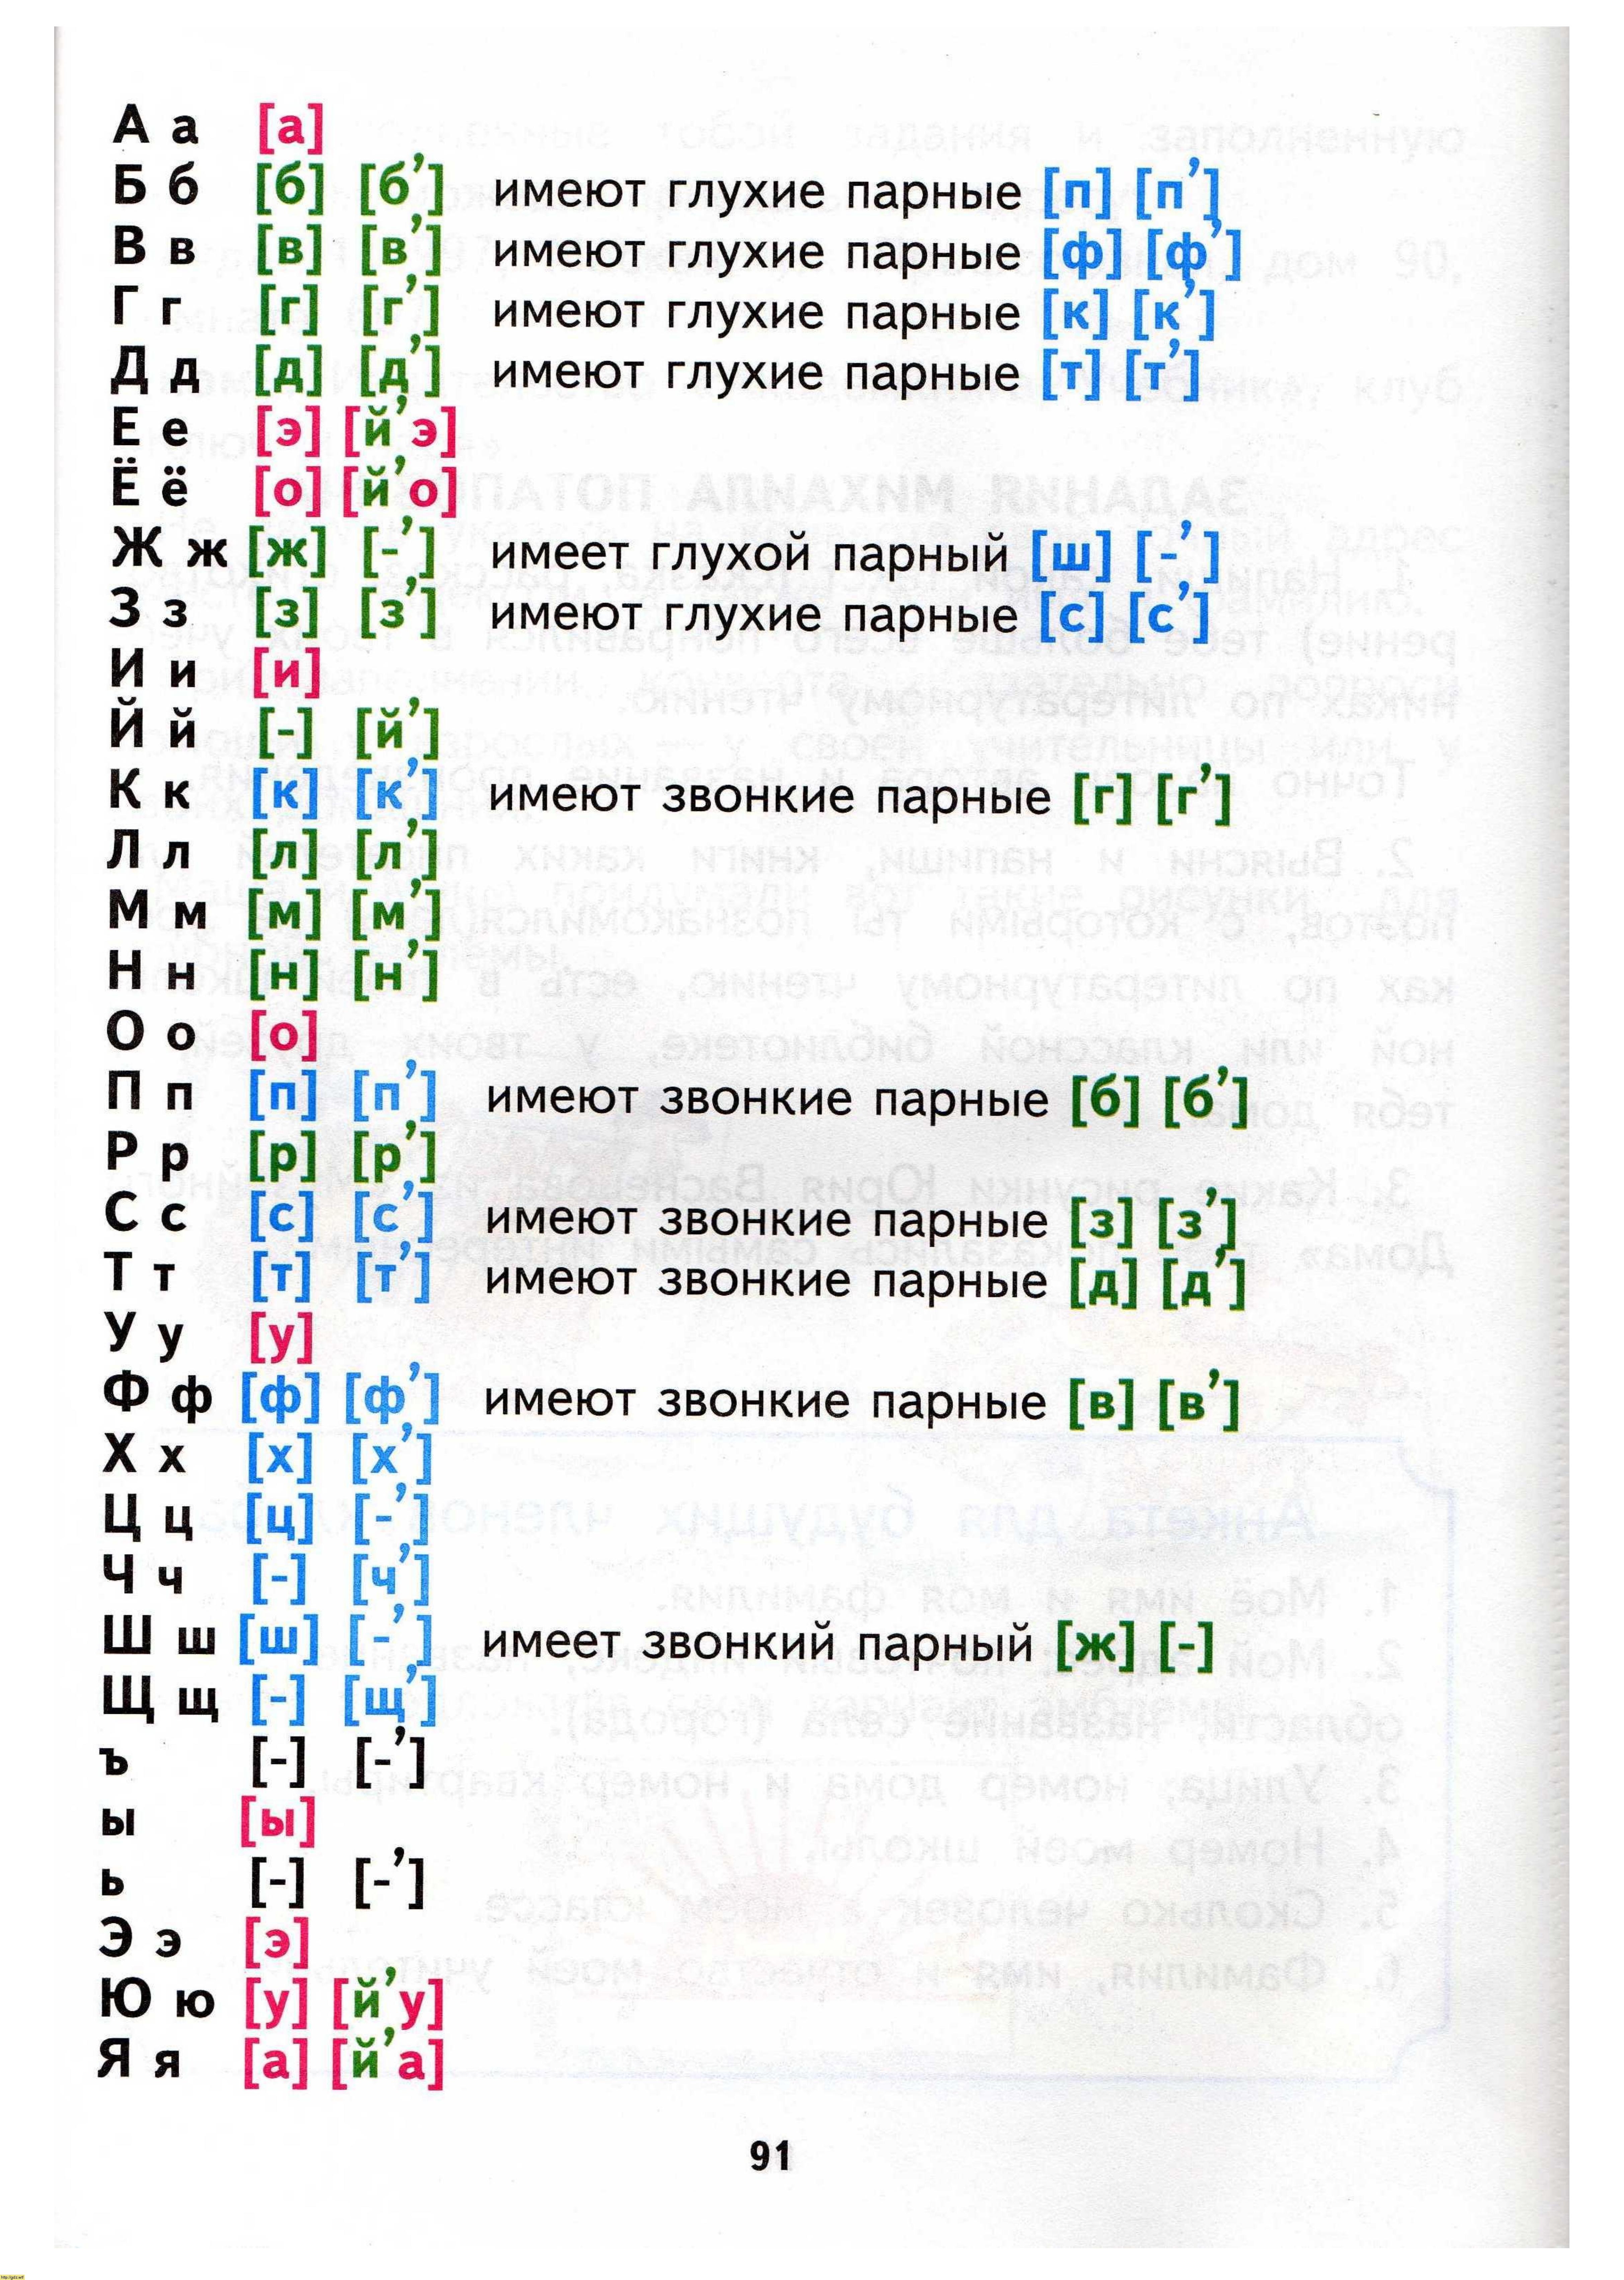 А а [а]
Б б [б] [б’] имеют глухие парные [п] [п’]
В в [в] [в’] имеют глухие парные [ф] [ф’]
Г г [г] [г’] имеют глухие парные [к] [к’]
Д д [д] [д’] имеют глухие парные [т] [т’]
Е е [э] [й’э]
Ё ё [о] [й’о]
Ж ж [ж] [-’] имеет глухой парный [ш] [-’]
З з [з] [з’] имеют глухие парные [с] [с’]
И и [и]
Й й [-] [й’]
К к [к] [к’] имеют звонкие парные [г] [г’]
Л л [л] [л’]
М м [м] [м’]
Н н [н] [н’]
О о [о]
П п [п] [п’] имеют звонкие парные [б] [б’]
Р р [р] [р’]
С с [с] [с’] имеют звонкие парные [з] [з’]
Т т [т] [т’] имеют звонкие парные [д] [д’]
У у [у]
Ф ф [ф] [ф’] имеют звонкие парные [в] [в’]
Х х [х] [х’]
Ц ц [ц] [-’]
Ч ч [-] [ч’]
Ш ш [ш] [-’] имеет звонкий парный [ж] [-]
Щ щ [-] [щ’]
ъ [-] [-’]
ы [ы]
ь [-] [-’]
Э э [э]
Ю ю [у] [й’у]
Я я [а] [й’а]
91